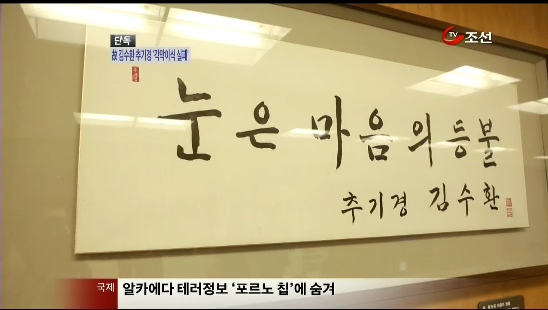 단독
故 김수환 추기경 '각막이식 실패'
TV 조선
눈은 마음의 등불
추기경 김수환
국제 알카에다 테러정보 '포르노 칩'에 숨겨